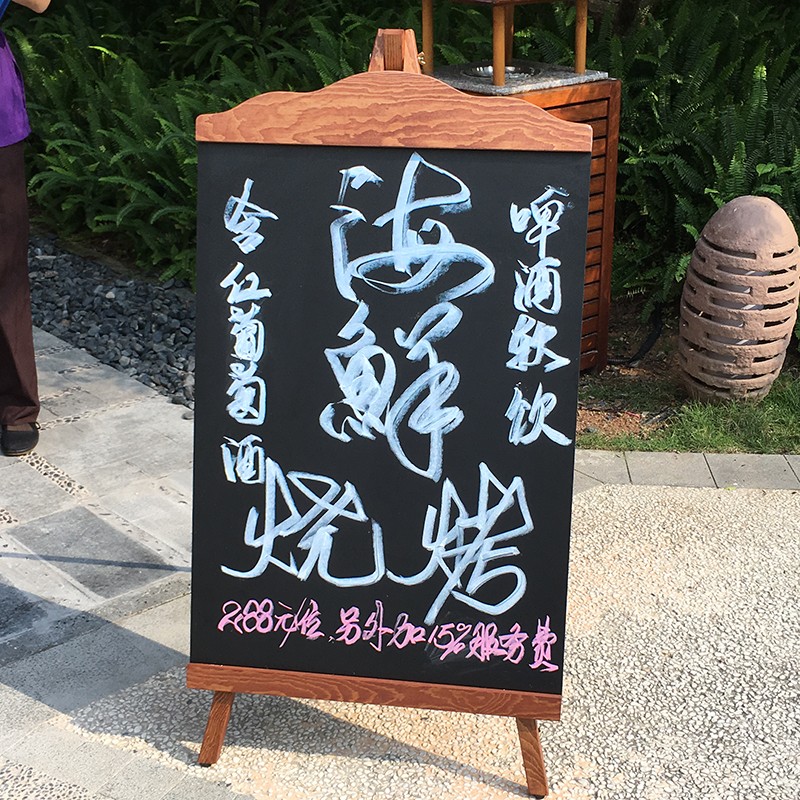 海鲜
烧烤
含红葡萄酒
啤酒软饮
288元/位,另外加15%服务费